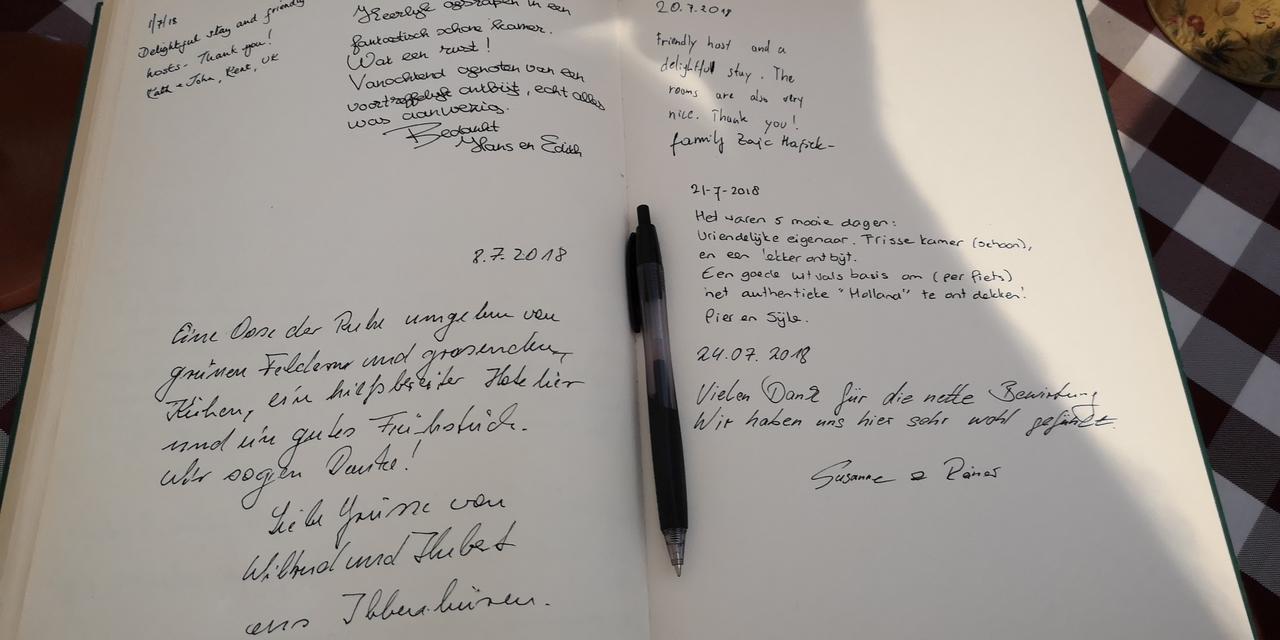 1/7/18
Delightful stay and friendly
hosts - Thank you!
Kath + John, Kent, UK
Heerlijk geslapen in een
fantastisch schone kamer.
Wat een rust!
Vanochtend genoten van een
voortreffelijk ontbijt, echt alles
was aanwezig.
Bedankt
Hans en Edith
8.7.2018
Eine Oase der Ruhe umgeben von
grünen Feldern und grasenden
Kühen, ein hilfsbereiter
und ein gutes Frühstück.
Wir sagen Danke!
Liebe Grüsse von
Wiltrud und Hubert
aus Ibbenbüren.
20.7.2018
Friendly host and a
delightful stay. The
rooms are also very
nice. Thank you!
family Zajc
21-7-2018
Het waren 5 mooie dagen:
Vriendelijke eigenaar. Frisse kamer (schoon),
en een lekker ontbijt.
Een goede uitvals basis om (per fiets)
het authentieke "Holland" te ontdekken!
Pier en
24.07.2018
Vielen Dank für die nette Bewirtung
Wir haben uns hier sehr wohl gefühlt.
Susanne & Rainer